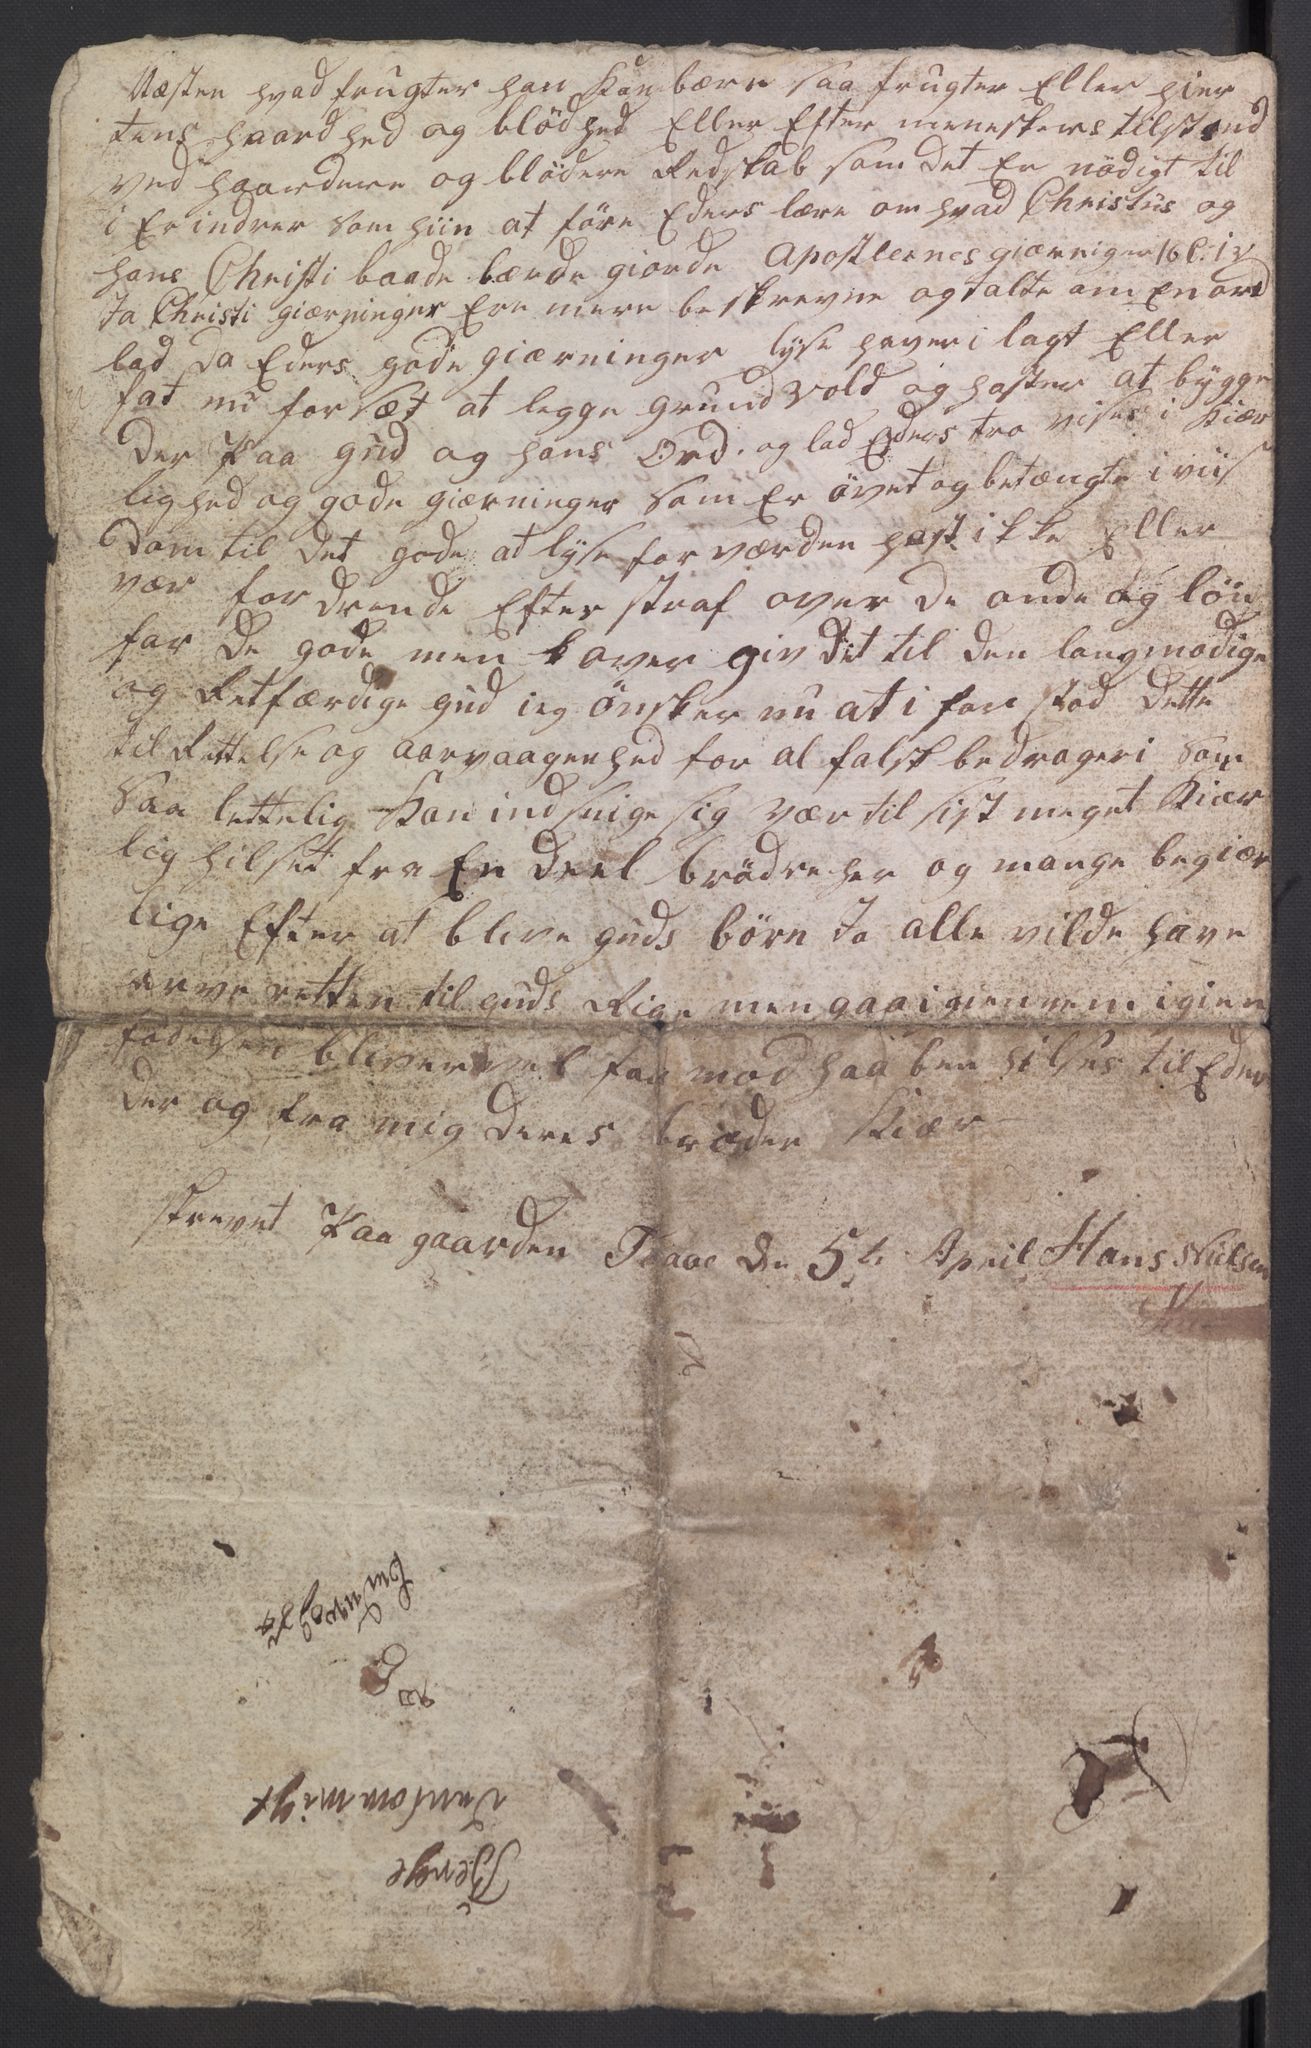 Næsten hvad frugter han kan bære saa frugter Eller hier
tens haardhed og blödhed Eller Efter meneskers tilstand
ved haardere og blödere Redskab som det Er nödigt til
i Erindrer som hiin at före Eders lære om hvad Christus og
hans Christi baade lærde giorde Apostlernes giærninger 16 C: i v
Ja Christi giærninger Ere mere beskrevne og talte om En ord
lad da Eders gode giærninger lyse haver i lagt Eller
fat nu forsæt at legge grund vold og haster at bygge
der Paa gud og hans Ord. og lad Eders tro vises i Kiær
lighed og gode giærninger som Er övet og betængte i viis
dom til det gode at lyse for værden hast ikke Eller
vær fordrende Efter straf over de onde og lön
for de gode men over giv det til den langmodige
og Retfærdige gud ieg önsker nu at i for stod dette
til Rettelse og aarvaagenhed for al falsk bedrageri som
saa lettelig Kan indsnige sig vær til sist meget Kiær
lig hilset fra En deel brödre her og mange begiær
lige Efter at blive guds börn Ja alle vilde have
arve retten til guds Rige men gaa igiennem igien
födelsen bliver vel faa mod haa ben hilses til Eder
der og fra mig deres broder Kiær
skrevet Paa gaarden den 5te April Hans Nielsen
Tienge